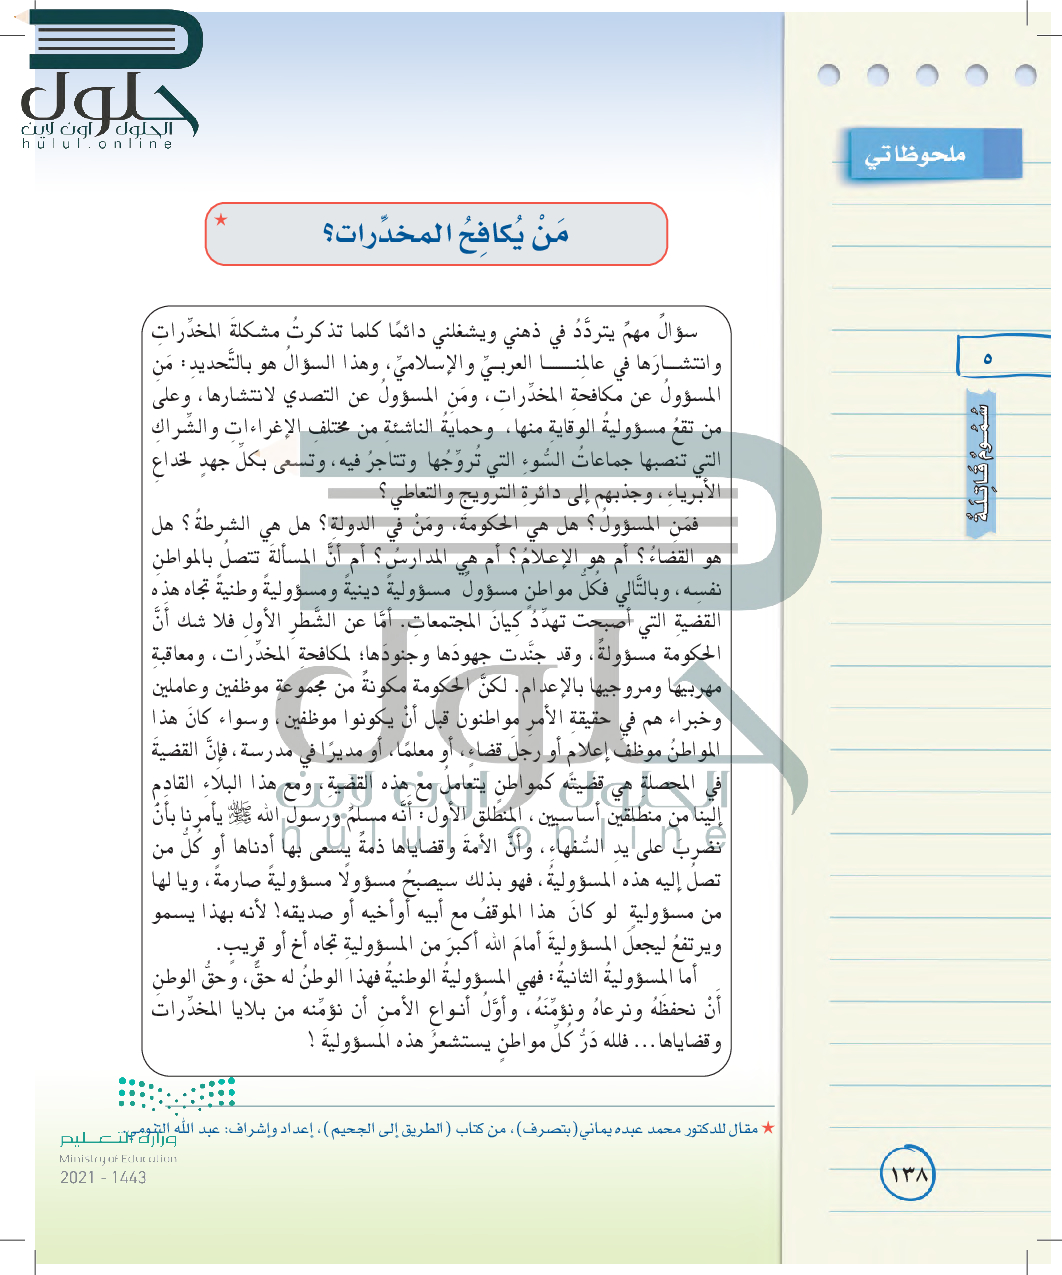 حلول
الحلول اون لاين
hulul.online
ملحوظاتي
مَنْ يُكافِحُ المخدِّرات؟ ★
سؤالٌ مهمٌ يتردَّدُ في ذهني ويشغلني دائمًا كلما تذكرتُ مشكلةَ المخدِّراتِ
وانتشـــارَها في عالمِنـــــا العربيِّ والإسلاميِّ، وهذا السؤالُ هو بالتَّحديدِ: مَنِ
المسؤولُ عن مكافحةِ المخدِّراتِ، ومَنِ المسؤولُ عن التصدي لانتشارها، وعلى
من تقعُ مسؤوليةُ الوقايةِ منها، وحمايةُ الناشئةِ من مختلفِ الإغراءاتِ والشِّراكِ
التي تنصبها جماعاتُ السُّوءِ التي تُروِّجُها وتتاجرُ فيه، وتسعى بكلِّ جهدٍ لخداعِ
الأبرياءِ، وجذبهم إلى دائرةِ الترويجِ والتعاطي؟
فمَنِ المسؤولُ؟ هل هي الحكومةُ، ومَنْ في الدولةِ؟ هل هي الشرطةُ؟ هل
هو القضاءُ؟ أم هو الإعلامُ؟ أم هي المدارسُ؟ أم أنَّ المسألةَ تتصلُ بالمواطنِ
نفسِه، وبالتَّالي فكُلُّ مواطنٍ مسؤولٌ مسؤوليةً دينيةً ومسؤوليةً وطنيةً تجاه هذِه
القضيةِ التي أصبحت تهدِّدُ كِيانَ المجتمعاتِ. أمَّا عن الشَّطرِ الأولِ فلا شك أنَّ
الحكومة مسؤولةٌ، وقد جنَّدت جهودَها وجنودَها؛ لمكافحةِ المخدِّرات، ومعاقبةِ
مهربيها ومروجيها بالإعدام. لكنَّ الحكومة مكونةٌ من مجموعةِ موظفين وعاملين
وخبراء هم في حقيقةِ الأمرِ مواطنون قبل أنْ يكونوا موظفين، وسواء كانَ هذا
المواطنُ موظفَ إعلامٍ أو رجلَ قضاءٍ، أو معلمًا، أو مديرًا في مدرسة، فإنَّ القضيةَ
في المحصلة هي قضيتُه كمواطنٍ يتعاملُ مع هذه القضيةِ، ومع هذا البلاءِ القادِمِ
إلينا من منطلقين أساسيين، المنطلق الأول: أنَّه مسلمٌ ورسول الله ﷺ يأمرنا بأنْ
نضربَ على يدِ السُّفهاءِ، وأنَّ الأمةَ وقضاياها ذمةٌ يسعى بها أدناها أو كُلُّ من
تصلُ إليه هذه المسؤوليةُ، فهو بذلك سيصبحُ مسؤولًا مسؤوليةً صارمةً، ويا لها
من مسؤوليةٍ لو كانَ هذا الموقفُ مع أبيه أوأخيه أو صديقه! لأنه بهذا يسمو
ويرتفعُ ليجعلَ المسؤوليةَ أمامَ الله أكبرَ من المسؤوليةِ تجاه أخ أو قريبٍ.
أما المسؤوليةُ الثانيةُ: فهي المسؤوليةُ الوطنيةُ فهذا الوطنُ له حقٌّ، وحقُّ الوطنِ
أَنْ نحفظَهُ ونرعاهُ ونؤمِّنَهُ، وأوَّلُ أنواعِ الأمنِ أن نؤمِّنه من بلايا المخدِّرات
وقضاياها... فلله دَرُّ كُلِّ مواطنٍ يستشعرُ هذه المسؤوليةَ!
★ مقال للدكتور محمد عبده يماني(بتصرف)، من كتاب (الطريق إلى الجحيم)، إعداد وإشراف: عبد الله التنومي.
٥
سُمُومٌ قَاتِلَةٌ
وزارة التعليم
Ministry of Education
2021 - 1443
١٣٨